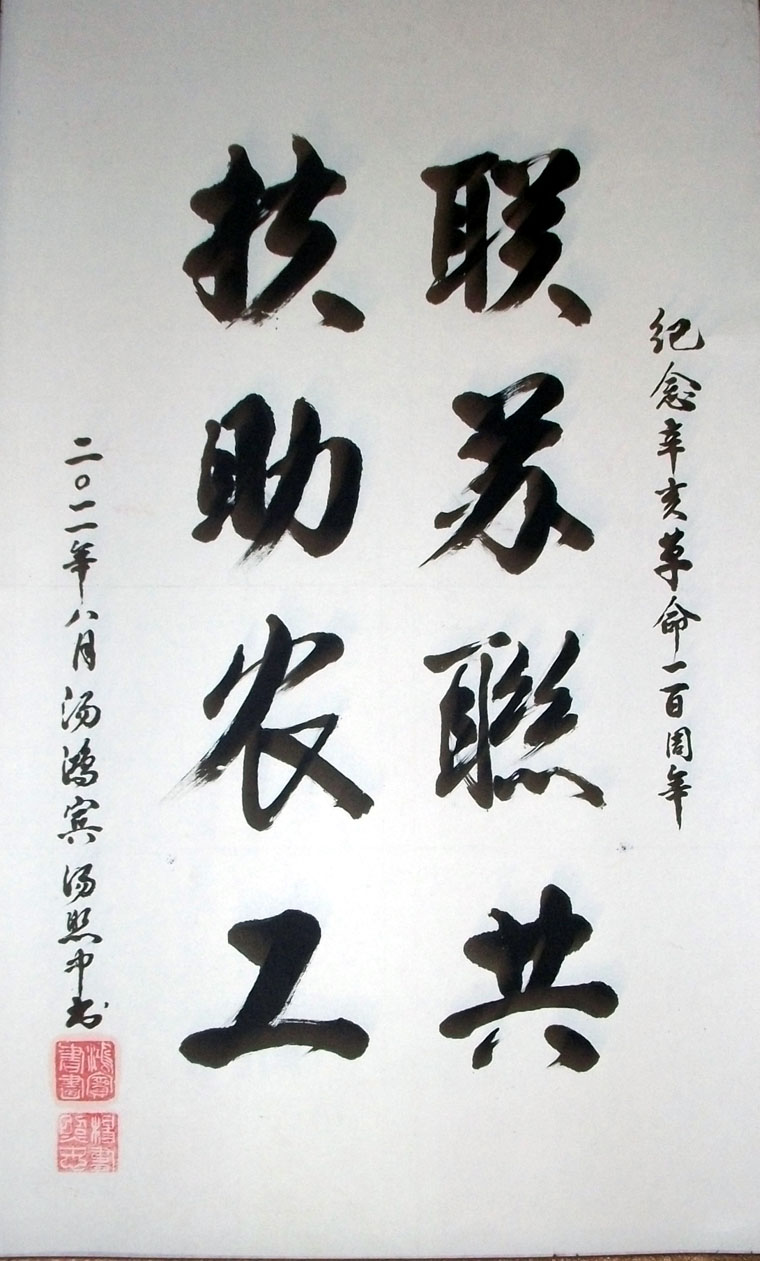 纪念辛亥革命一百周年
联苏聯共
扶助农工
二〇一一年八月汤鸿宾汤熙中书